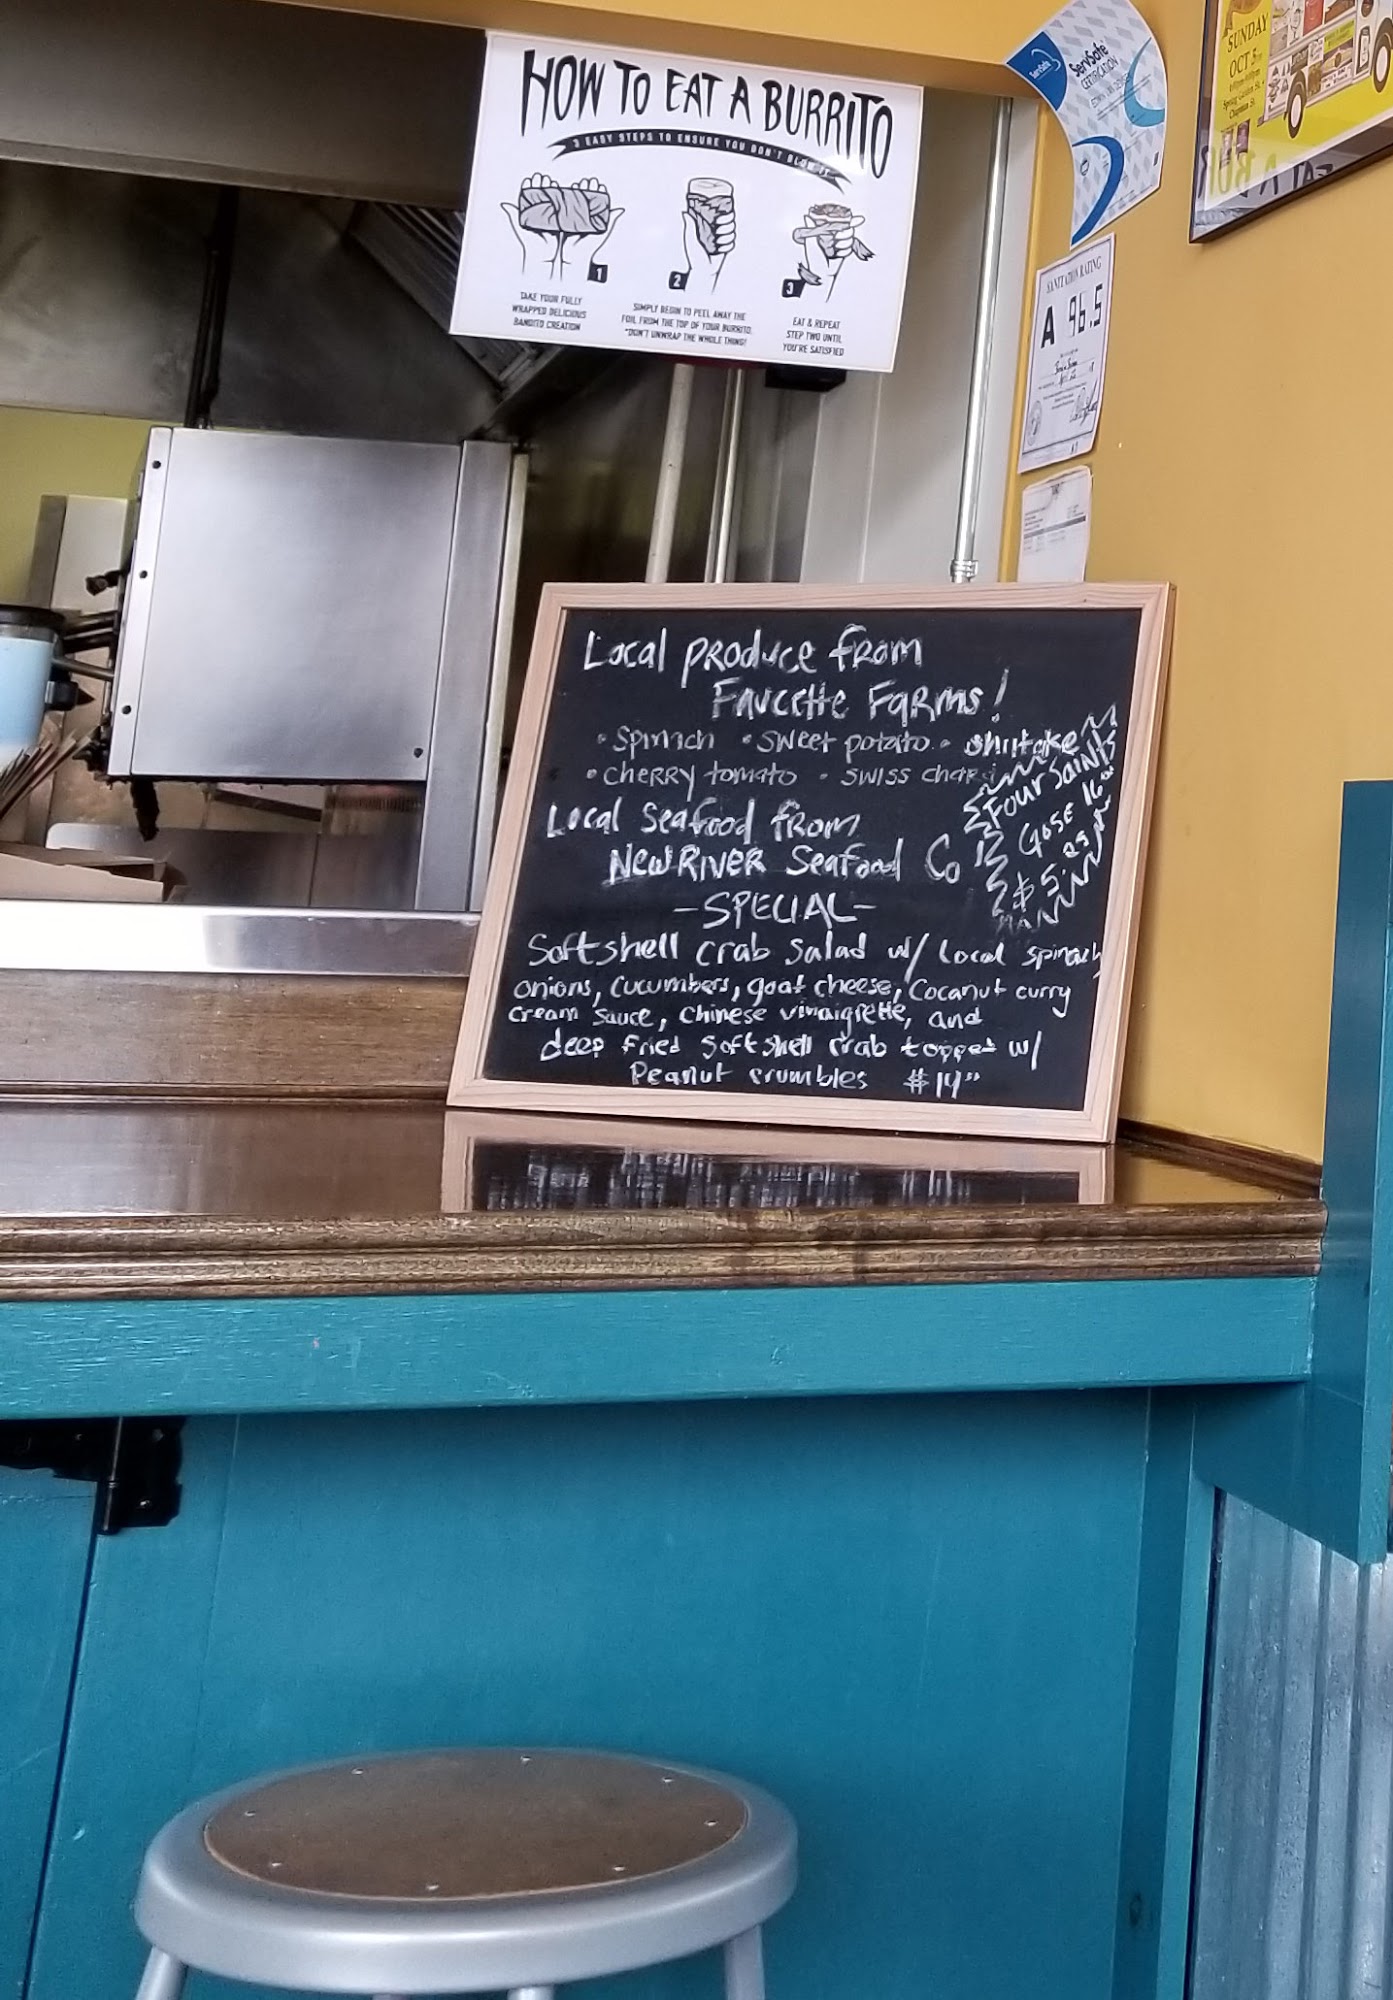 HOW TO EAT A BURRITO
3 EASY STEPS TO ENSURE YOU DON'T BLOW IT
1
TAKE YOUR FULLY
WRAPPED DELICIOUS
BANDITO CREATION
2
SIMPLY BEGIN TO PEEL AWAY THE
FOIL FROM THE TOP OF YOUR BURRITO.
*DON'T UNWRAP THE WHOLE THING!
3
EAT & REPEAT
STEP TWO UNTIL
YOU'RE SATISFIED
ServSafe
ServSafe
CERTIFICATION
SUNDAY
OCT 5
SANITATION RATING
A 96.5
Local produce from
Faucette Farms!
• Spinach • sweet potato • shiitake
• cherry tomato • swiss chard
Four Saints
Gose 16oz
$5.25
Local Seafood from
New River Seafood Co
-SPECIAL-
Softshell crab salad w/ local spinach
onions, cucumbers, goat cheese, Coconut curry
cream sauce, chinese vinaigrette, and
deep fried softshell crab topped w/
Peanut crumbles $14